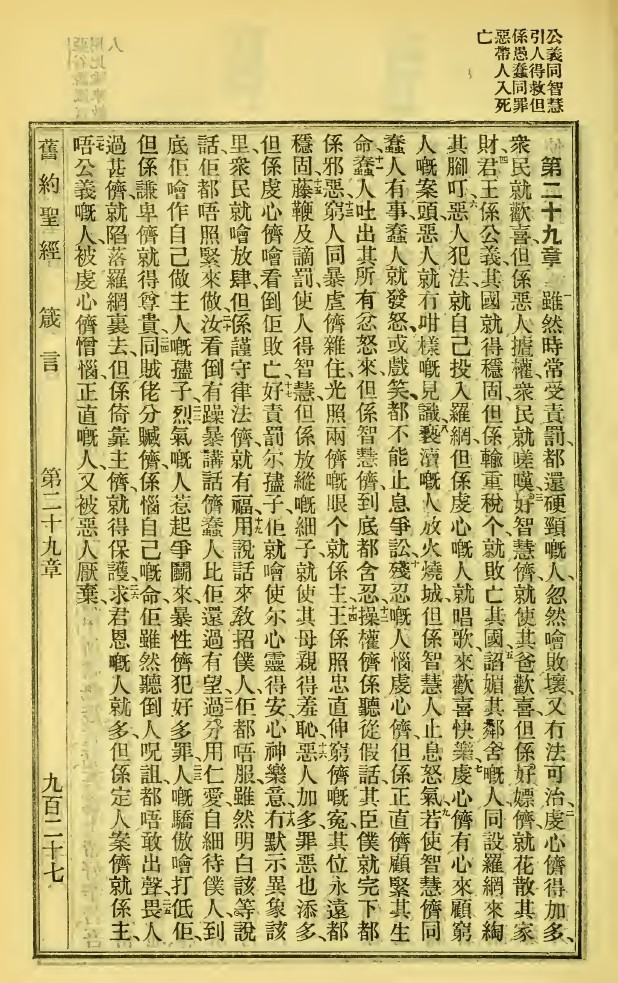 公義同智慧
引人得救但
係愚蠢同罪
惡帶人入死
亡
第二十九章 一雖然時常受責罰都還硬頸嘅人忽然噲敗壞又冇法可治二虔心儕得加多
衆民就歡喜但係惡人攄權衆民就嗟嘆三好智慧儕就使其爸歡喜但係好嫖儕就花散其家
財四君王係公義其國就得穩固但係輸重稅个就敗亡其國五諂媚其鄰舍嘅人同設羅網來綯
其腳吖六惡人犯法就自己投入羅網但係虔心嘅人就唱歌來歡喜快樂七虔心儕有心來顧窮
人嘅案頭惡人就冇咁樣嘅見識八褻瀆嘅人放火燒城但係智慧人止息怒氣九若使智慧儕同
蠢人有事蠢人就發怒或戲笑都不能止息爭訟十殘忍嘅人惱虔心儕但係正直儕顧緊其生
命十一蠢人吐出其所有忿怒來但係智慧儕到底都含忍十二操權儕係聽從假話其臣僕就完下都
係邪惡十三窮人同暴虐儕雜住光照兩儕嘅眼个就係主十四王係照忠直伸窮儕嘅冤其位永遠都
穩固十五藤鞭及謫罰使人得智慧但係放縱嘅細子就使其母親得羞恥十六惡人加多罪惡也添多
但係虔心儕噲看倒佢敗亡十七好責罰尔孻子佢就噲使尔心靈得安心神樂意十八冇默示異象該
里衆民就噲放肆但係謹守律法儕就有福十九用說話來敎招僕人佢都唔服雖然明白該等說
話佢都唔照緊來做二十汝看倒有躁暴講話儕蠢人比佢還過有望二一過分用仁愛自細待僕人到
底佢噲作自己做主人嘅孻子二二烈氣嘅人惹起爭鬭來暴性儕犯好多罪二三人嘅驕傲噲打低佢
但係謙卑儕就得尊貴二四同賊佬分贓儕係惱自己嘅命佢雖然聽倒人呪詛都唔敢出聲二五畏人
過甚儕就陷落羅網裏去但係倚靠主儕就得保護二六求君恩嘅人就多但係定人案儕就係主
二七唔公義嘅人被虔心儕憎惱正直嘅人又被惡人厭棄
舊約聖經 箴言 第二十九章 九百二十七